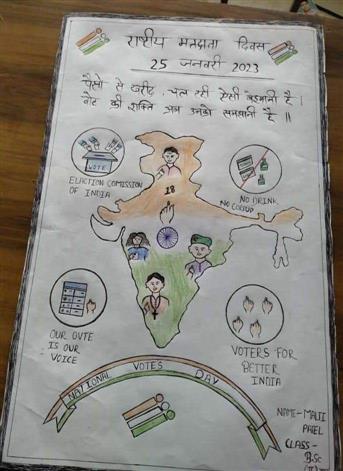 राष्ट्रीय मतदाता दिवस
25 जनवरी 2023
पैसो से खरीद, चल रही ऐसी
है।
वोट की शक्ति अब उनको समझानी है॥
VOTE
18
ELACTION COMISSION
OF INDIA
NO DRINK
NO CORUUP
OUR OVTE
IS OUR
VOICE
VOTERS FOR
BETTER
INDIA
NATIONAL VOTES DAY
NAME-MALTI
PATEL
CLASS-
B.Sc